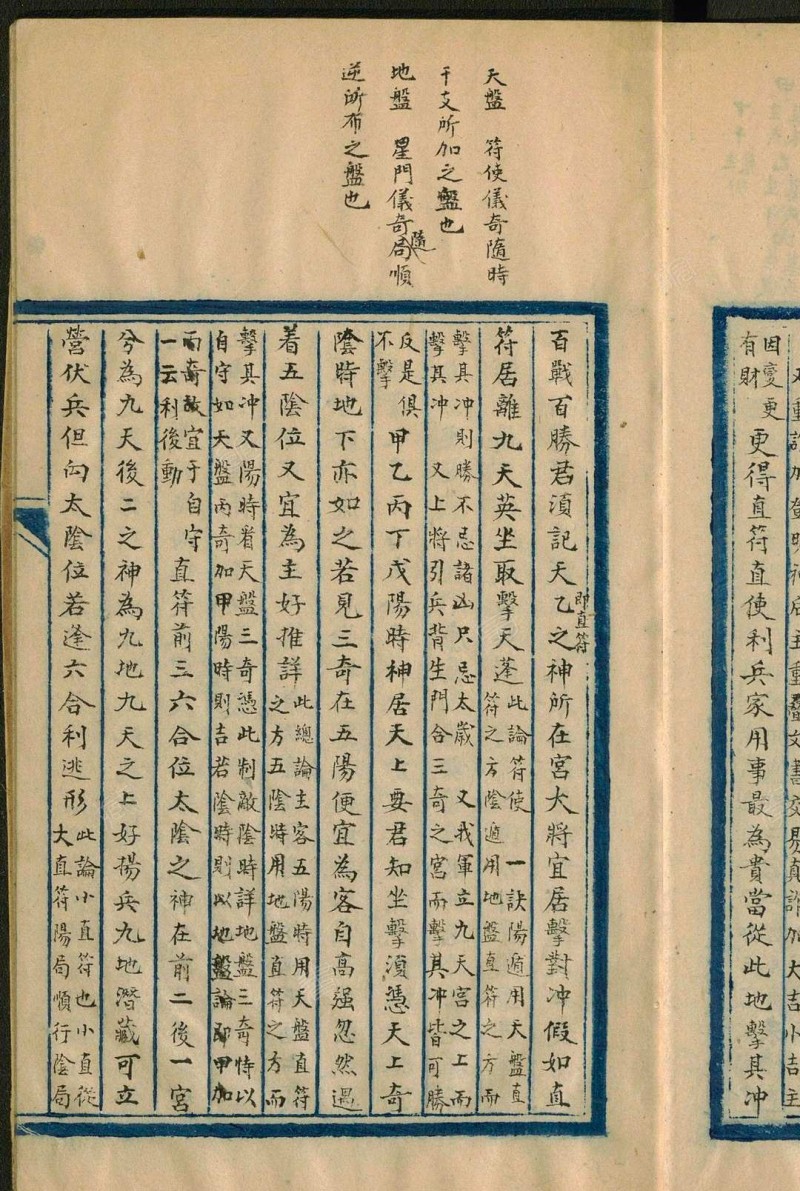 因變更
有財
更得直符直使利兵家用事最為貴當從此地擊其冲
天盤　符使儀奇隨時
干支所加之盤也
地盤　星門儀奇隨局順
逆所布之盤也
百戰百勝君須記天乙即直符之神所在宮大將宜居擊對冲假如直
符居離九天英坐取擊天蓬
此論符使一訣陽遁用天盤直
符之方陰遁用地盤直符之方而
擊其冲則勝不忌諸凶只忌太歲　又我軍立九天宮之上而
擊其冲　又上將引兵背生門合三奇之宮而擊其冲皆可勝
反是俱
不擊
甲乙丙丁戊陽時神居天上要君知坐擊須憑天上奇
陰時地下亦如之若見三奇在五陽便宜為客自高强忽然遇
着五陰位又宜為主好推詳
此總論主客五陽時用天盤直符
之方五陰時用地盤直符之方而
擊其冲又陽時看天盤三奇憑此制敵陰時詳地盤三奇恃以
自守如天盤丙奇加甲陽時則吉若陰時則以地盤論即甲加
丙奇故宜于自守
一云利後動
直符前三六合位太陰之神在前二後一宮
兮為九天後二之神為九地九天之上好揚兵九地潛藏可立
營伏兵但向太陰位若逢六合利逃形
此論小直符也小直從
大直符陽局順行陰局